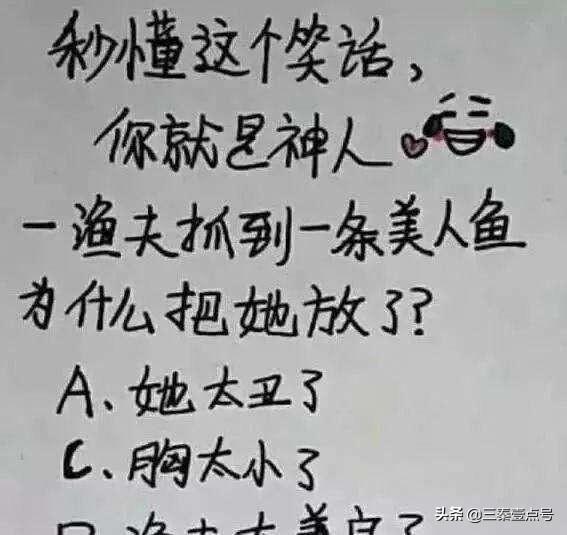 秒懂这个笑话，
你就是神人
一渔夫抓到一条美人鱼
为什么把她放了？
A、她太丑了
C、胸太小了
D、渔夫太善良了
头条 @三秦壹点号